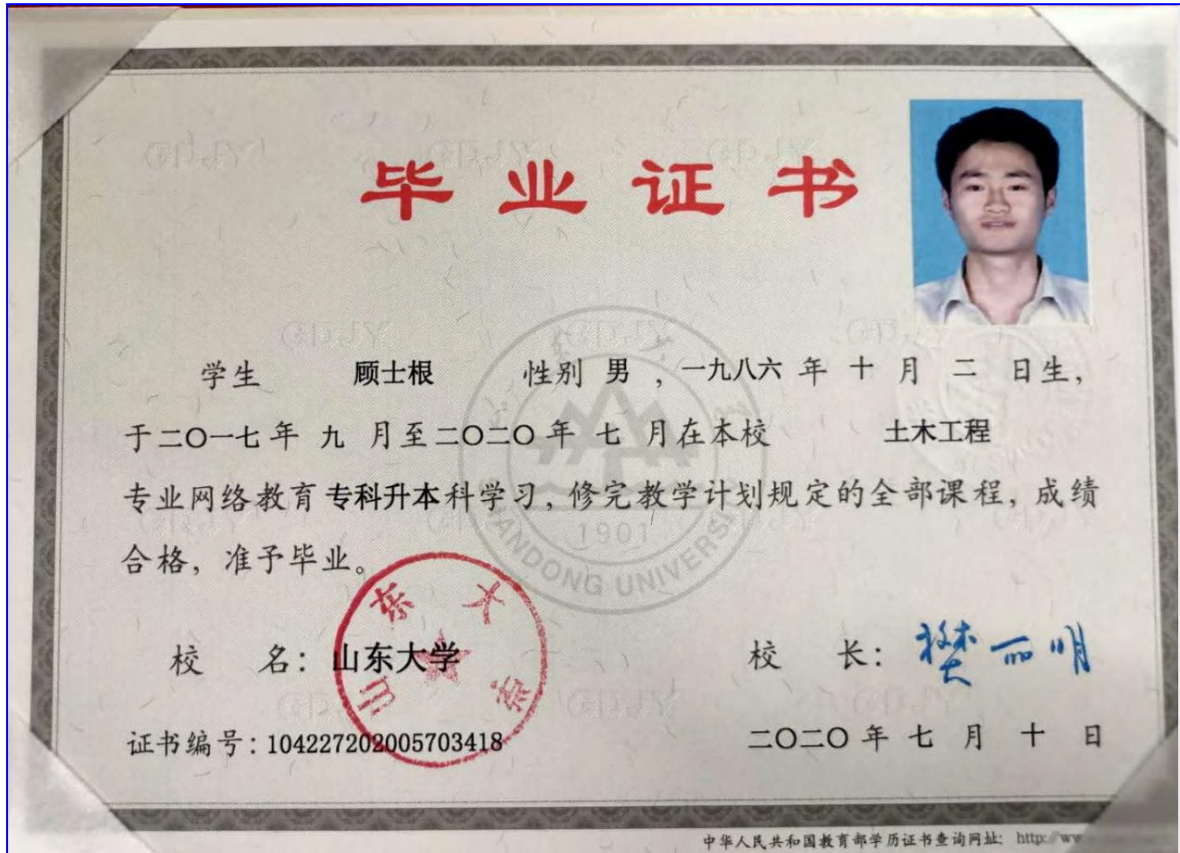 毕业证书
学生 顾士根 性别 男 ，一九八六 年 十 月 二 日生，
于二〇一七年 九 月至二〇二〇年 七 月在本校 土木工程
专业网络教育专科升本科学习，修完教学计划规定的全部课程，成绩
合格，准予毕业。
1901
SHANDONG UNIVERSITY
山东大学
校 名：山东大学 校 长：樊丽明
证书编号：104227202005703418 二〇二〇年 七 月 十 日
中华人民共和国教育部学历证书查询网址：http://ww